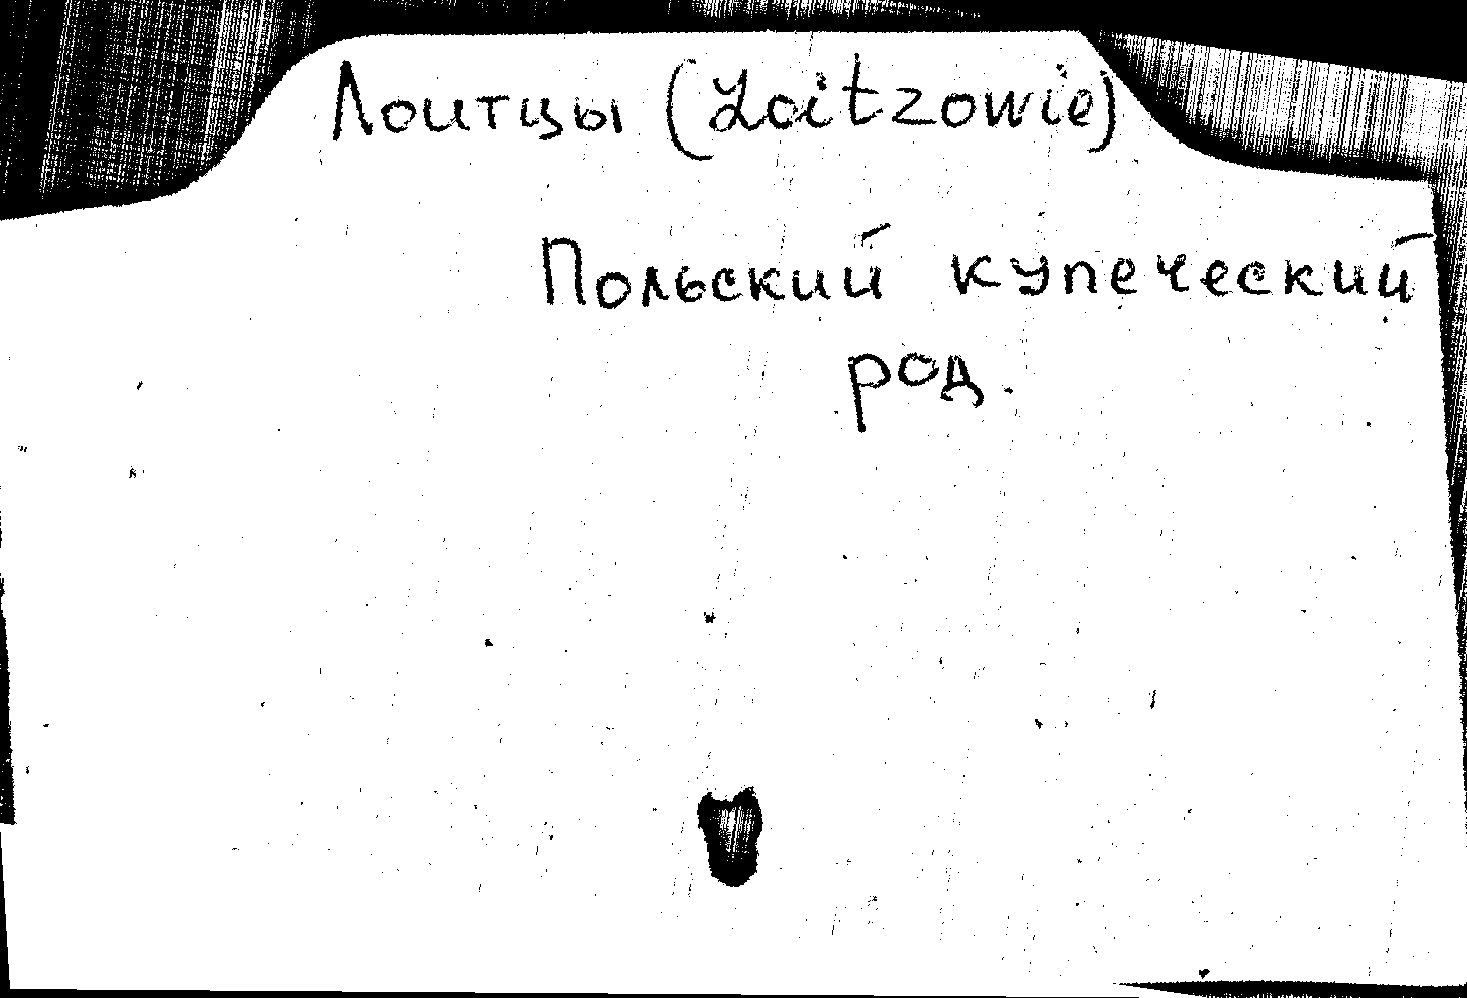 Лоитцы (Loitzowie)
Польский купеческий
род.